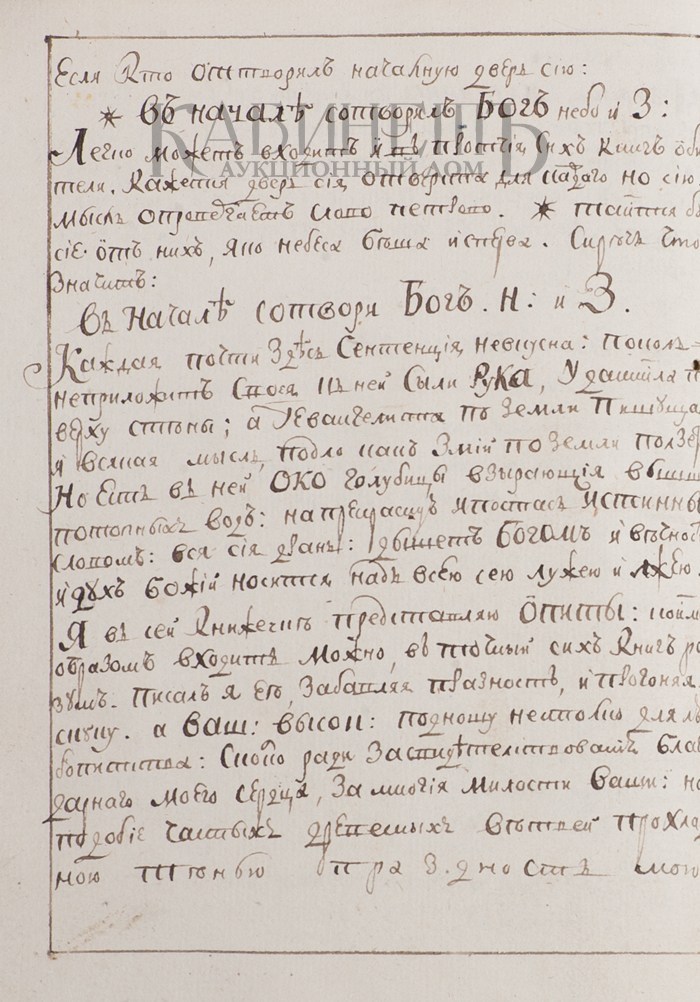 Если Кто Отворилъ началную дверь сію:
✴ въ началѣ сотворилъ БОГЪ небо и З:
КАБИНЕТЪ
АУКЦИОННЫЙ ДОМ
Легко можетъ входить и въ протчія Сихъ Книгъ Оби
тели. Кажется дверь сія, отверста для каждаго но сію
мысль опровергаетъ слово петрово. ✴ таится бо
сіе отъ нихъ, яко небеса бѣша исперва. Сирѣчь что
Значитъ:
въ Началѣ сотвори БогЪ. Н: и З.
Каждая почти Здѣсь Сентенція, невкусна: поколь-
неприложитъ Своея къ ней Силы Рука,
верху стѣны; а Евангелиста по Земли Пишуща
и всякая мысль, подло какъ Змій по Земли ползе
Но Есть въ ней ОКО голубицы взырающія выш
потопныхъ водъ: на прекрасну Vпостась Истинны
словомъ: вся сія дрянь: дышетъ БОГОМЪ и вѣчност
и духъ божій носится надъ всею сею лужею и лжею.
Я въ сей Книжечкѣ представляю Опыты: коим
образомъ входить можно, въ точный сихъ Книгъ ра
зумъ. Писалъ я Ея, Забавляя праздность, и прогоняя
скуку. а Ваш: высок: подношу нестолко для лю
бопитства: Сколко ради Засвидѣтелствованія Благ
дарнаго моего Сердца, За многія Милости Ваши: на
подобіе частыхъ древесныхъ вѣтвей прохлад
ною тѣнью праздность мою